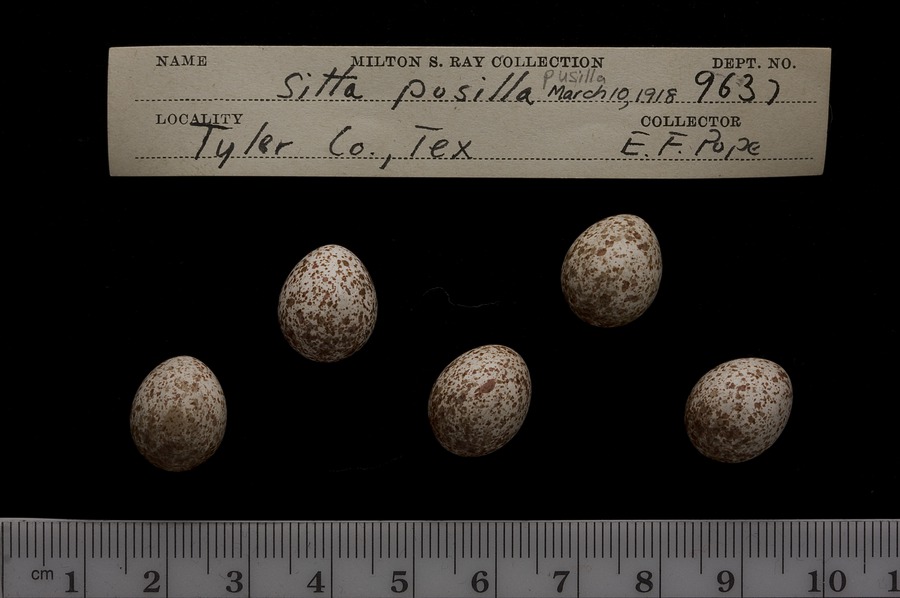 NAME MILTON S. RAY COLLECTION DEPT. NO.
pusilla
Sitta pusilla March 10, 1918 9637
LOCALITY COLLECTOR
Tyler Co., Tex E. F. Pope
cm 1 2 3 4 5 6 7 8 9 10 1